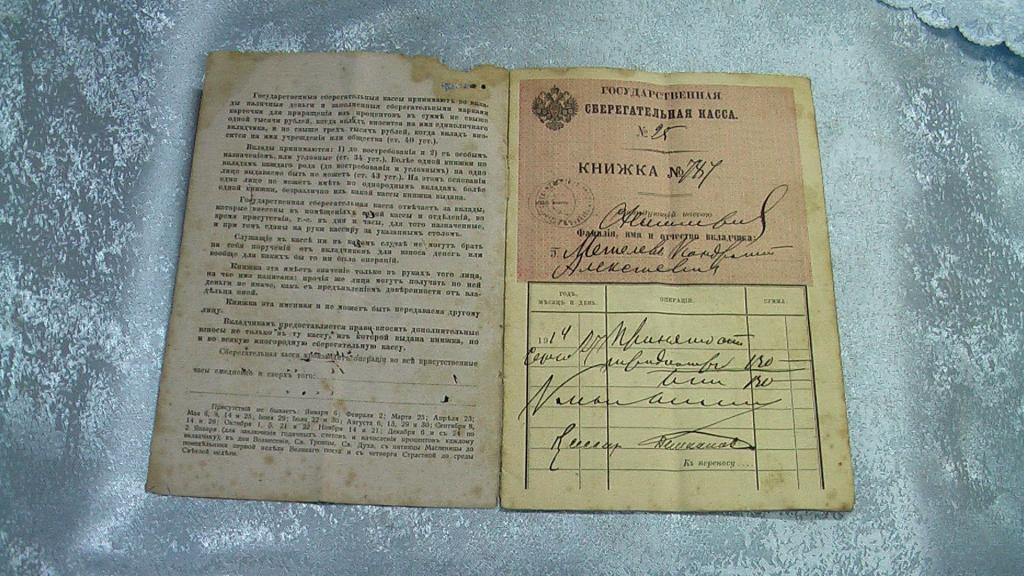 Государственныя сберегательныя кассы принимаютъ во вкла-
ды наличныя деньги и заполненныя сберегательными марками
карточки для приращенія изъ процентовъ въ суммѣ не свыше
одной тысячи рублей, когда вкладъ вносится на имя единоличнаго
вкладчика, и не свыше трехъ тысячъ рублей, когда вкладъ вно-
сится на имя учрежденія или общества (ст. 40 уст.).
Вклады принимаются: 1) до востребованія и 2) съ особымъ
назначеніемъ, или условные (ст. 34 уст.). Болѣе одной книжки по
вкладамъ каждаго рода (до востребованія и условнымъ) на одно
лицо выдаваемо быть не можетъ (ст. 43 уст.). На этомъ основаніи
одно лицо не можетъ имѣть по однороднымъ вкладамъ болѣе
одной книжки, безразлично изъ какой кассы книжка выдана.
Государственная сберегательная касса отвѣчаетъ за вклады,
которые внесены въ помѣщеніяхъ самой кассы и отдѣленій, во
время присутствія, т.-е. въ дни и часы, для того назначенные,
и при томъ сданы на руки кассиру за указаннымъ столомъ.
Служащіе въ кассѣ ни въ какомъ случаѣ не могутъ брать
на себя порученій отъ вкладчиковъ для взноса денегъ или
вообще для какихъ бы то ни было операцій.
Книжка эта имѣетъ значеніе только въ рукахъ того лица,
на чье имя написана; прочія же лица могутъ получать по ней
деньги не иначе, какъ съ предъявленіемъ довѣренности отъ вла-
дѣльца оной.
Книжка эта именная и не можетъ быть передаваема другому
лицу.
Вкладчикамъ предоставляется право вносить дополнительные
взносы не только въ ту кассу, изъ которой выдана книжка, но
и во всякую иногороднюю сберегательную кассу.
Сберегательная касса производитъ операціи во всѣ присутственные
часы ежедневно и сверхъ того:
Присутствій не бываетъ: Января 6; Февраля 2; Марта 25; Апрѣля 23;
Мая 6, 9, 14 и 25; Іюня 29; Іюля 22 и 30; Августа 6, 15, 29 и 30; Сентября 8,
14 и 26; Октября 1, 5, 21 и 22; Ноября 14 и 21; Декабря 6 и съ 24 по
2 Января (для заключенія годичныхъ счетовъ и начисленія процентовъ каждому
вкладчику), въ дни Вознесенія, Св. Троицы, Св. Духа, съ пятницы Масленицы до
понедѣльника первой недѣли Великаго поста и съ четверга Страстной до среды
Свѣтлой недѣли.
ГОСУДАРСТВЕННАЯ
СБЕРЕГАТЕЛЬНАЯ КАССА.
№ 25
КНИЖКА № 787
Фамилія, имя и отчество вкладчика:
Метелевъ Кондратій
Алексѣевичъ
ГОДЪ, ОПЕРАЦІИ. СУММА.
МѢСЯЦЪ И ДЕНЬ.
1914 Принято
130
130
Кассир
Къ переносу....